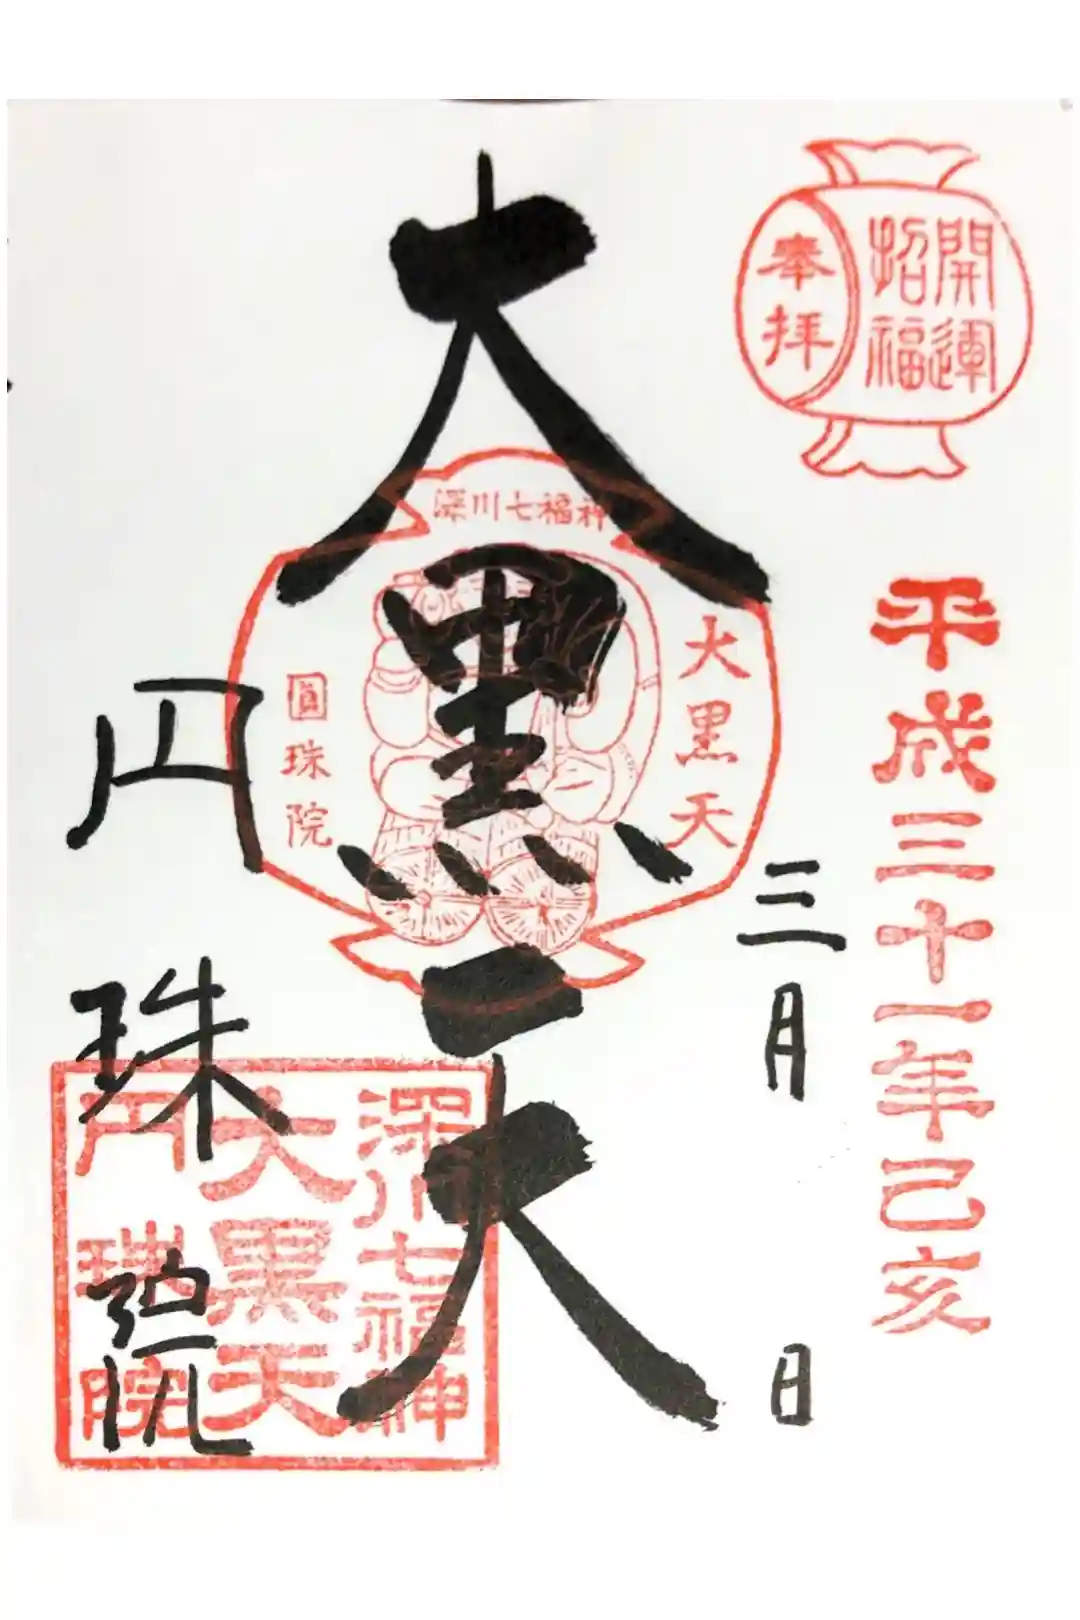 開運
招福
奉拝
平成三十一年己亥
三月 日
大黒天
深川七福神
大黒天
圓珠院
円珠
深川七福神
大黒天
円珠院